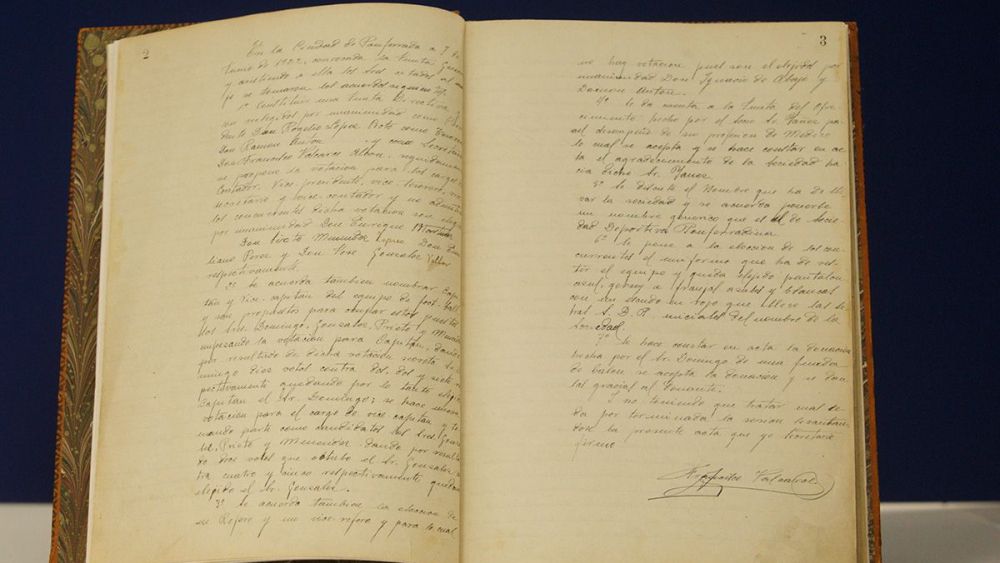 2
En la Ciudad de Ponferrada a 7 de
Junio de 1922, convocada la Junta General
y asistiendo a ella los Sres
se tomaron los acuerdos siguientes
1º Constituir una Junta Directiva
elegidos por unanimidad como
Don Rogelio López Prieto como
Don Ramón Antón y como Secretario
Don Francisco Valcarce Albon,
se propone la votación para los cargos
Contador, Vice-presidente, vice-tesorero, vice
secretario y vice contador y no
los concurrentes dicha votación son
por unanimidad Don Enrique
Don Don
Perez y Don José Gonzalez
respectivamente.
2º Se acuerda tambien nombrar Capi-
tán y Vice-capitán del equipo de foot-ball
y son propuestos para ocupar estos puestos
los Sres. Domingo, Gonzalez, Prieto y
empezando la votación para Capitán, dando
por resultado de dicha votación secreta
mingo diez votos contra dos, dos y siete
pectivamente quedando por lo tanto elegido
Capitan el Sr. Domingo; se hace nueva
votación para el cargo de vice-capitan y
mando parte como candidatos los Sres. Gonza-
lez, Prieto y dando por resulta-
do diez votos que obtubo el Sr. Gonzalez
tra cuatro y cinco respectivamente quedando
elegido el Sr. Gonzalez.
3º Se acuerda tambien la elección de
un Refere y un vice-refere y para lo cual
3
no hay votación pues son elegidos por
unanimidad Don Ignacio de Abajo y
Antón.
4º Se da cuenta a la Junta del Ofre-
cimiento hecho por el Socio Sr. Yañez pa-
el desempeño de su profesion de Médico
lo cual se acepta y se hace constar en ac-
ta el agradecimiento de la Sociedad ha-
cia dicho Sr. Yañez
5º Se discute el nombre que ha de lle-
var la sociedad y se acuerda ponerle
un nombre generico que es el de Socie-
dad Deportiva Ponferradina
6º Se pone a la eleccion de los con-
currentes el uniforme que ha de ves-
tir el equipo y queda elejido pantalon
azul, gersey a franjas azules y blancas
con un escudo en rojo que lleve las le-
tras S. D. P. iniciales del nombre de la
Sociedad.
7º Se hace constar en acta la donación
hecha por el Sr. Domingo de una funda
de balon se acepta la donacion y se dan
las gracias al donante.
Y no teniendo que tratar mas se
da por terminada la sesion levantan-
dose la presente acta que yo Secretario
firmo
Francisco Valcarce